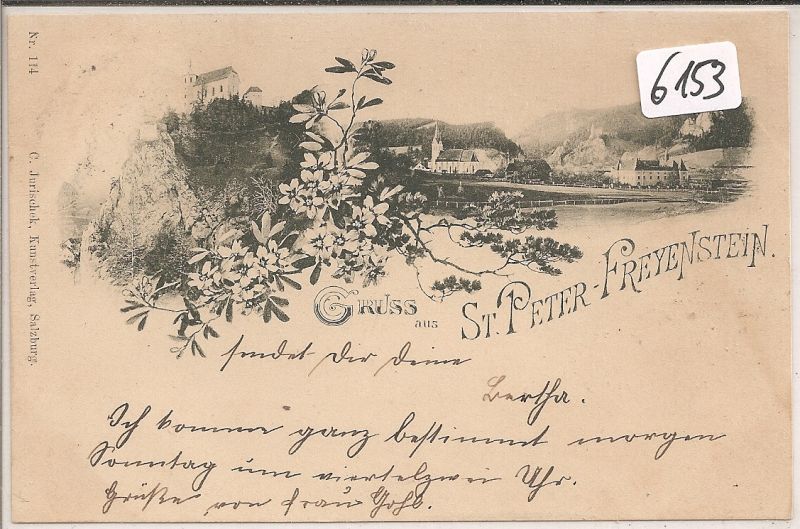 Nr. 114 C. Jurischek, Kunstverlag, Salzburg.
6153
GRUSS aus ST. PETER-FREYENSTEIN.
sendet Dir Deine
Bertha.
Ich komme ganz bestimmt morgen
Sonntag um viertelzwei Uhr.
Grüße von Frau Gohl.